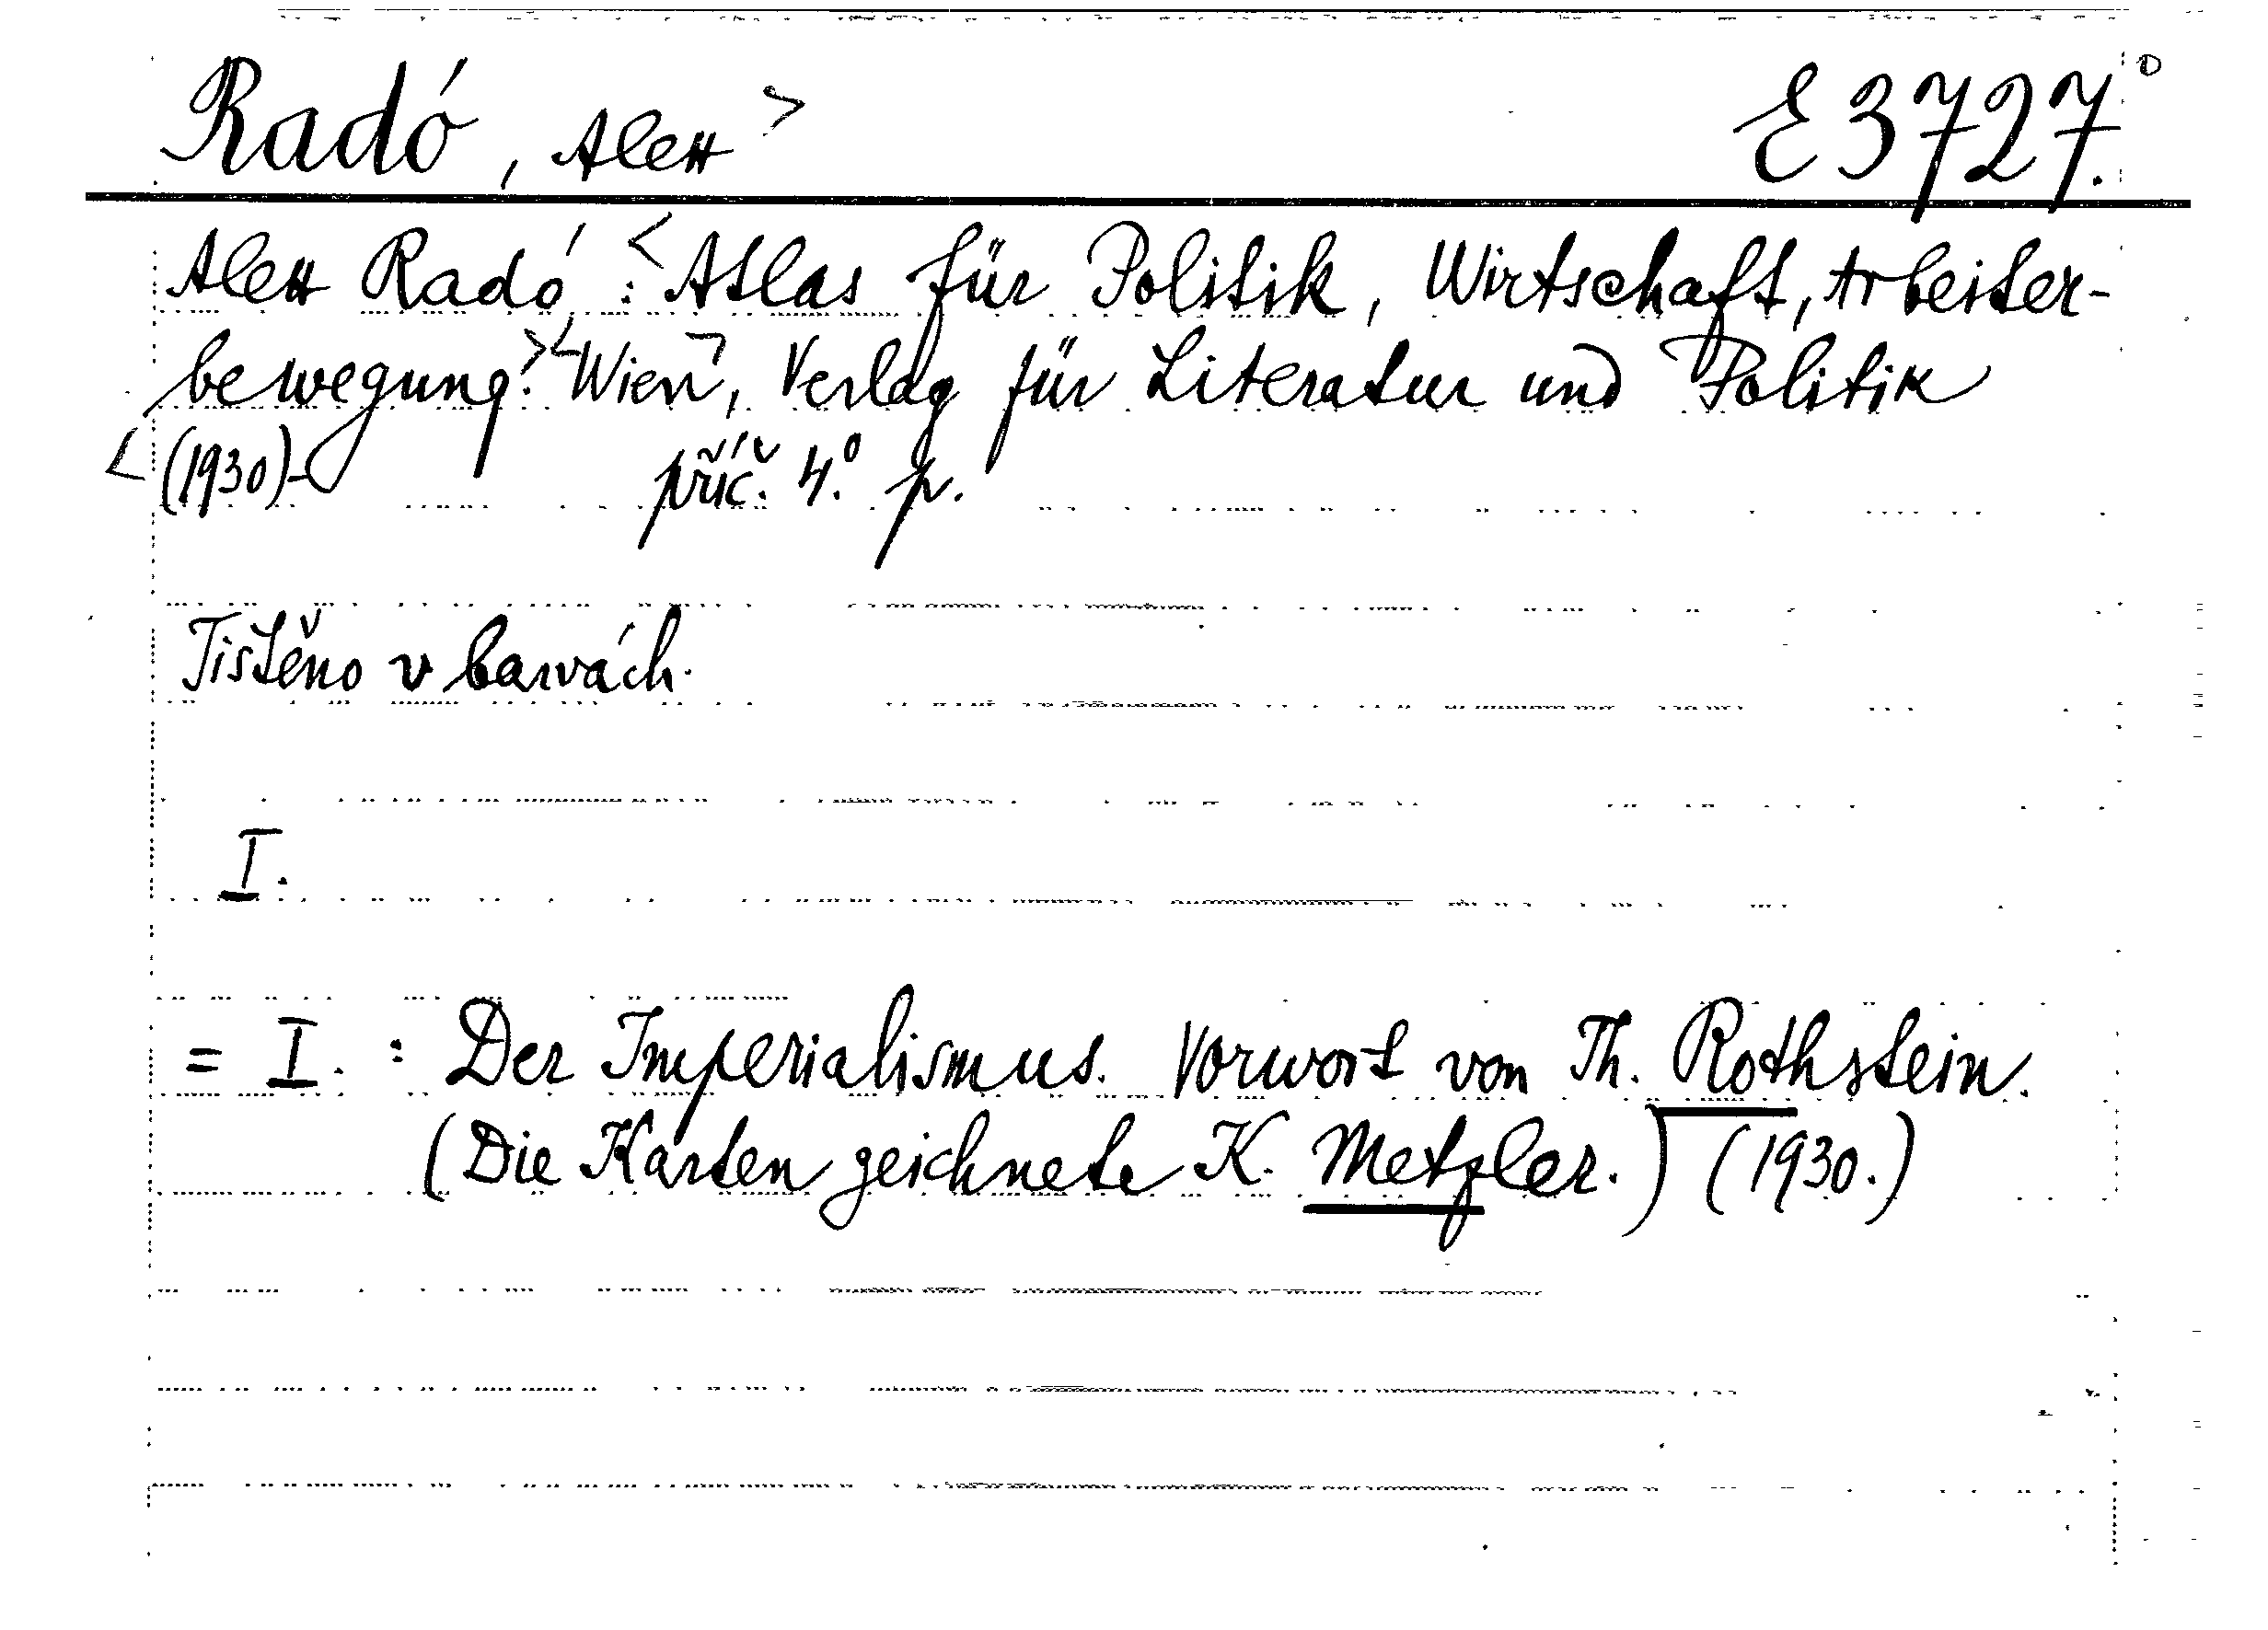 Radó, Alex > E 3727.°
Alex Radó: <Atlas für Politik, Wirtschaft, Arbeiter-
bewegung.>< Wien>, Verlag für Literatur und Politik
<(1930)- příč. 4.° p.
Tištěno v barvách.
I.
= I. : Der Imperialismus. Vorwort von Th. Rothstein.
(Die Karten zeichnete K. Metzler.) (1930.)